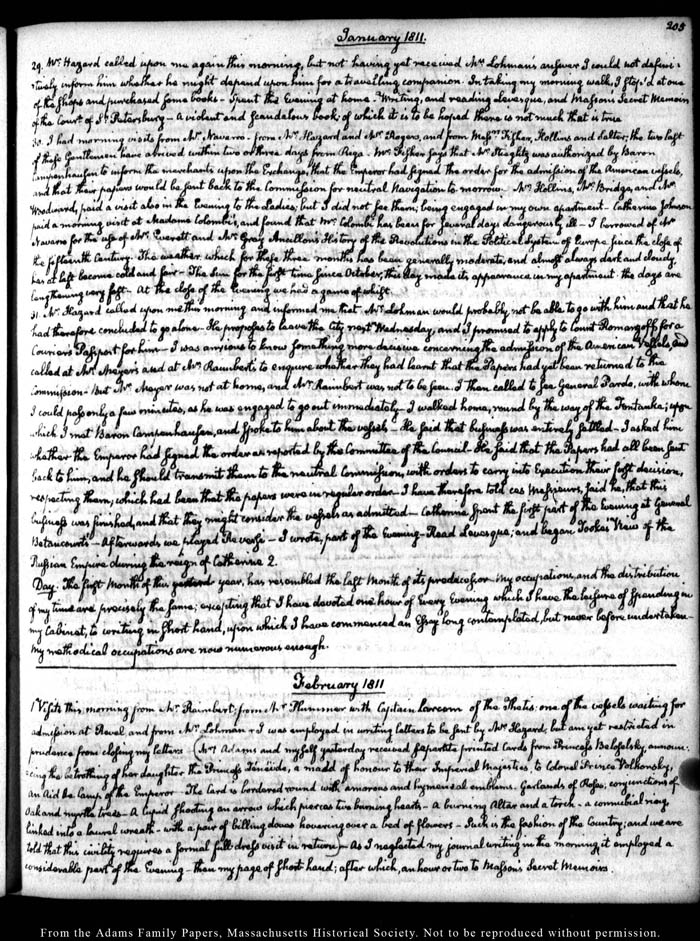 205
January 1811.
29. Mr. Hazard called upon me again this morning, but not having yet received Mr. Lohman's answer I could not defini-
tively inform him whether he might depend upon him for a travelling companion. In taking my morning walk, I stop'd at one
of the shops and purchased some books. Spent the Evening at home. Writing, and reading Levesque, and Masson's Secret Memoirs
of the Court of St. Petersburg. A violent and scandalous book, of which it is to be hoped there is not much that is true
30. I had morning visits from Mr. Navarro. from Mr. Hazard and Mr. Rogers, and from Messrs. Fisher, Hollins and Salter; the two last
of these Gentlemen have arrived within two or three days from Riga. Mr. Fisher says that Mr. Stieglitz was authorized by Baron
Campenhausen to inform the merchants upon the Exchange, that the Emperor had signed the order for the admission of the American vessels,
and that their papers would be sent back to the Commission for neutral Navigation to-morrow. Mr. Hollins, Mr. Bridge, and Mr.
Woodward, paid a visit also in the Evening to the Ladies; but I did not see them; being engaged in my own apartment. Catherine Johnson
paid a morning visit at Madame Colombi's, and found that Mr. Colombi has been for several days dangerously ill. I borrowed of Mr.
Navarro for the use of Mr. Everett and Mr. Gray Ancillon's History of the Revolutions in the Political System of Europe since the close of
the fifteenth Century. The weather which for these three months has been generally moderate, and almost always dark and cloudy,
has at last become cold and fair. The Sun for the first time since October, this day made its appearance in my apartment. the days are
lengthening very fast. At the close of the Evening we had a game of whist.
31. Mr. Hazard called upon me this morning and informed me that Mr. Lohman would probably not be able to go with him and that he
had therefore concluded to go alone. He proposes to leave the City next Wednesday, and I promised to apply to Count Romanzoff, for a
Courier's Passport for him. I was anxious to know something more decisive concerning the admission of the American Vessels, and
called at Mr. Meyer's and at Mr. Raimbert's to enquire whether they had learnt that the Papers had yet been returned to the
Commission. But Mr. Meyer was not at home, and Mr. Raimbert was not to be seen. I then called to see General Pardo, with whom
I could pass only a few minutes, as he was engaged to go out immediately. I walked home, round by the way of the Fontanka; upon
which I met Baron Campenhausen, and spoke to him about the vessels. He said that business was entirely settled. I asked him
whether the Emperor had signed the order as reported by the Committee of the Council. He said that the Papers had all been sent
back to him, and he should transmit them to the neutral Commission, with orders to carry into execution their first decision,
respecting them, which had been that the papers were in regular order. I have therefore told ces Messieurs, said he, that this
business was finished, and that they might consider the vessels as admitted. Catherine spent the first part of the Evening at General
Betancourt's. Afterwards we played Reversi. I wrote, part of the Evening. Read Levesque; and began Tooke's View of the
Russian Empire during the reign of Catherine 2.
Day. The first Month of this year, has resembled the last Month of its predecessor. My occupations, and the distribution
of my time are precisely the same; excepting that I have devoted one hour of Every Evening which I have the leisure of spending in
my Cabinet, to writing in short hand, upon which I have commenced an Essay long contemplated, but never before undertaken.
My methodical occupations are now numerous enough.
February 1811
1 Visits this morning from Mr. Raimbert; from Mr. Plummer with Captain Larcom of the Thetis: one of the vessels waiting for
admission at Revel and from Mr. Lohman. I was employed in writing letters to be sent by Mr. Hazard; but am yet restricted in
prudence from closing my letters. Mrs. Adams and myself yesterday received separate printed Cards from Princess Beloselsky, announ-
cing the betrothing of her daughter the Princess Zineide, a maid of honour to their Imperial Majesties, to Colonel Prince Volkonsky,
an Aid de Camp of the Emperor. The Card is bordered round with amorous and hymeneal emblems. Garlands of Roses; conjunctions of
Oak and myrtle trees. A Cupid shooting an arrow which pierces two burning hearts. A burning Altar and a torch. a connubial ring
linked into a laurel wreath. with a pair of billing doves hovering over a bed of flowers. Such is the fashion of the Country; and we are
told that this civility requires a formal full dress visit in return. As I neglected my journal writing in the morning it employed a
considerable part of the Evening. then my page of short hand; after which, an hour or two to Masson's Secret Memoirs.
From the Adams Family Papers, Massachusetts Historical Society. Not to be reproduced without permission.